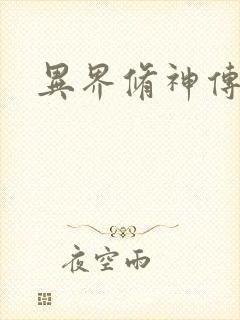 異界脩神傳
夜空雨